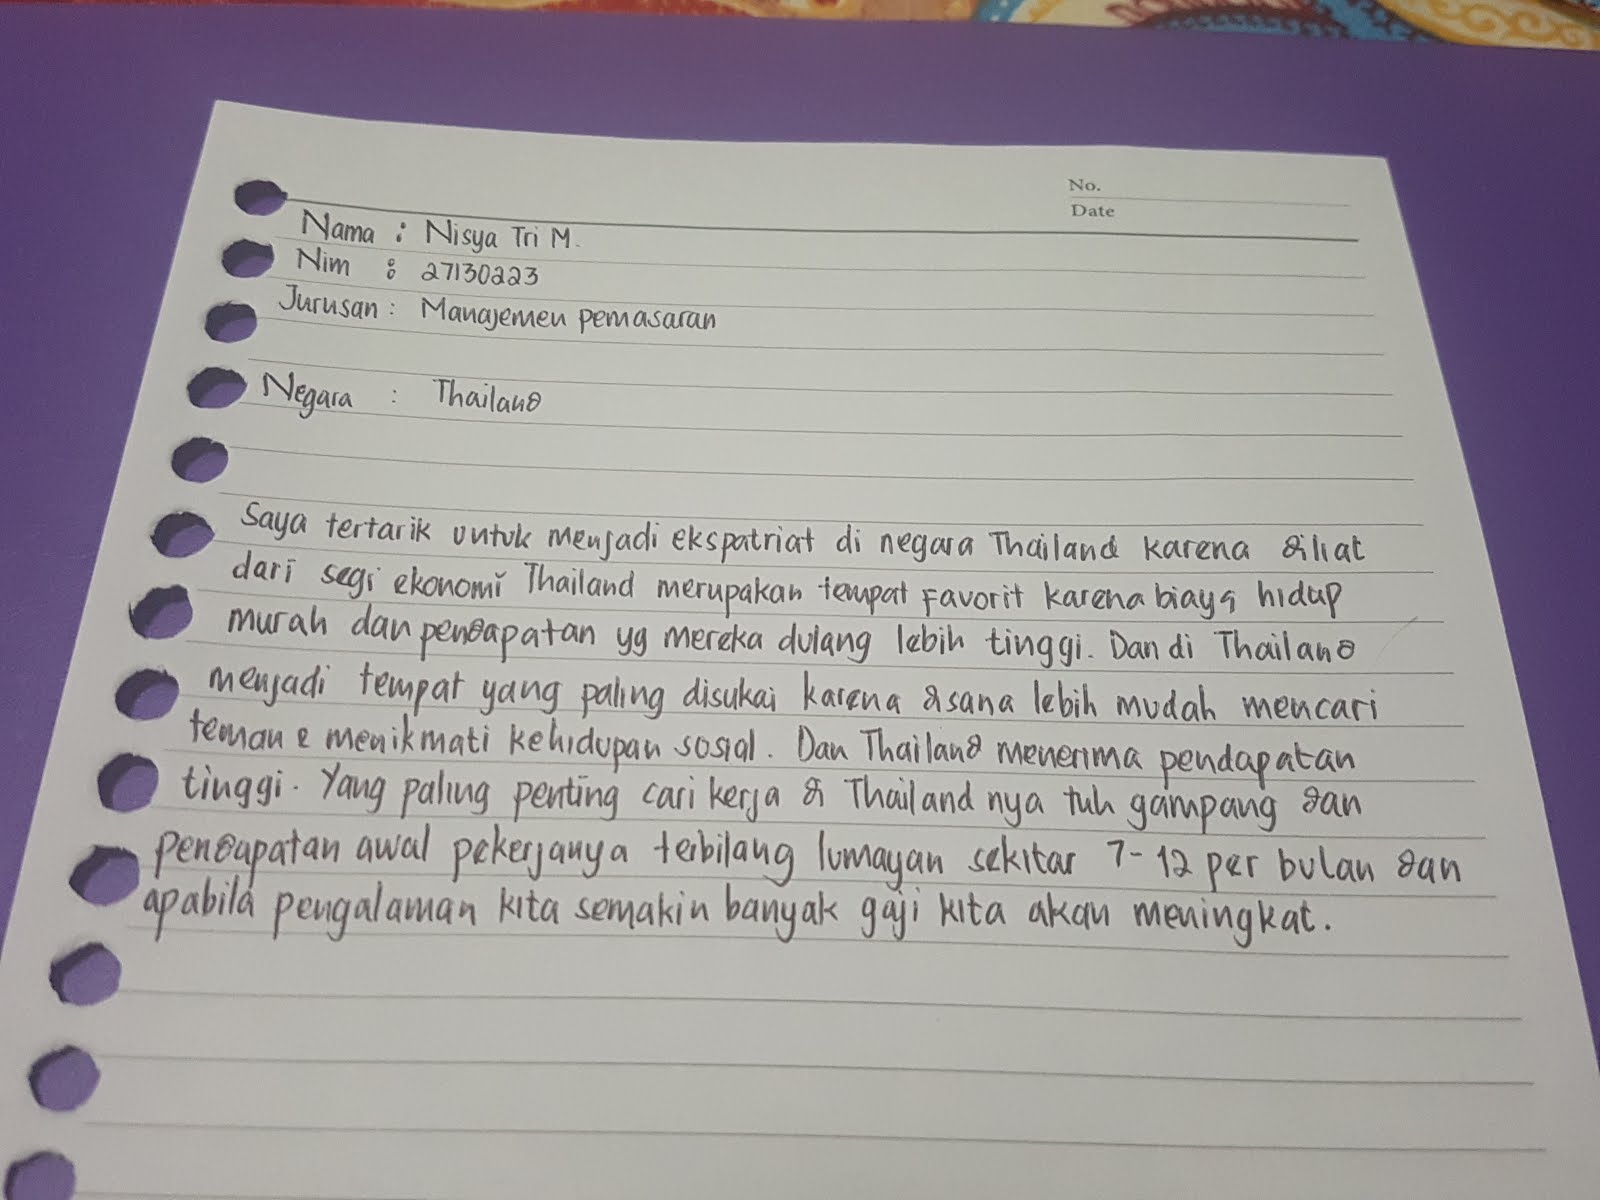 No.
Date
Nama : Nisya Tri M.
Nim : 27130223
Jurusan : Manajemen pemasaran
Negara : Thailand
Saya tertarik untuk menjadi ekspatriat di negara Thailand karena diliat
dari segi ekonomi Thailand merupakan tempat favorit karena biaya hidup
murah dan pendapatan yg mereka dulang lebih tinggi. Dan di Thailand
menjadi tempat yang paling disukai karena disana lebih mudah mencari
teman2 menikmati kehidupan sosial. Dan Thailand menerima pendapatan
tinggi. Yang paling penting cari kerja di Thailand nya tuh gampang dan
pendapatan awal pekerjanya terbilang lumayan sekitar 7-12 per bulan dan
apabila pengalaman kita semakin banyak gaji kita akan meningkat.